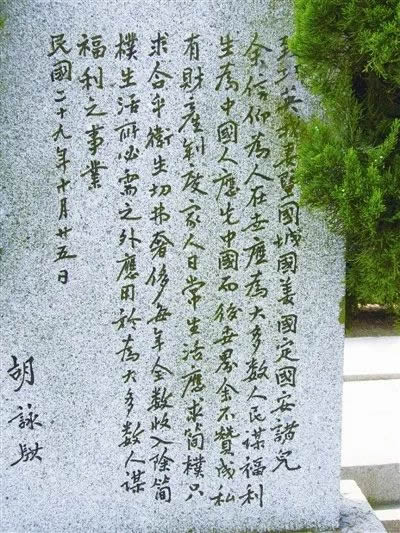 巧英我妻暨國城國美國定國安諸兒
余信仰為人在世應為大多數人民謀福利
生為中國人應先中國而後世界余不贊成私
有財產制度家人日常生活應求簡樸只
求合乎衛生切弗奢侈每年全數收入除簡
樸生活所必需之外應用於為大多數人謀
福利之事業
民國二十九年十月廿五日
胡詠騏